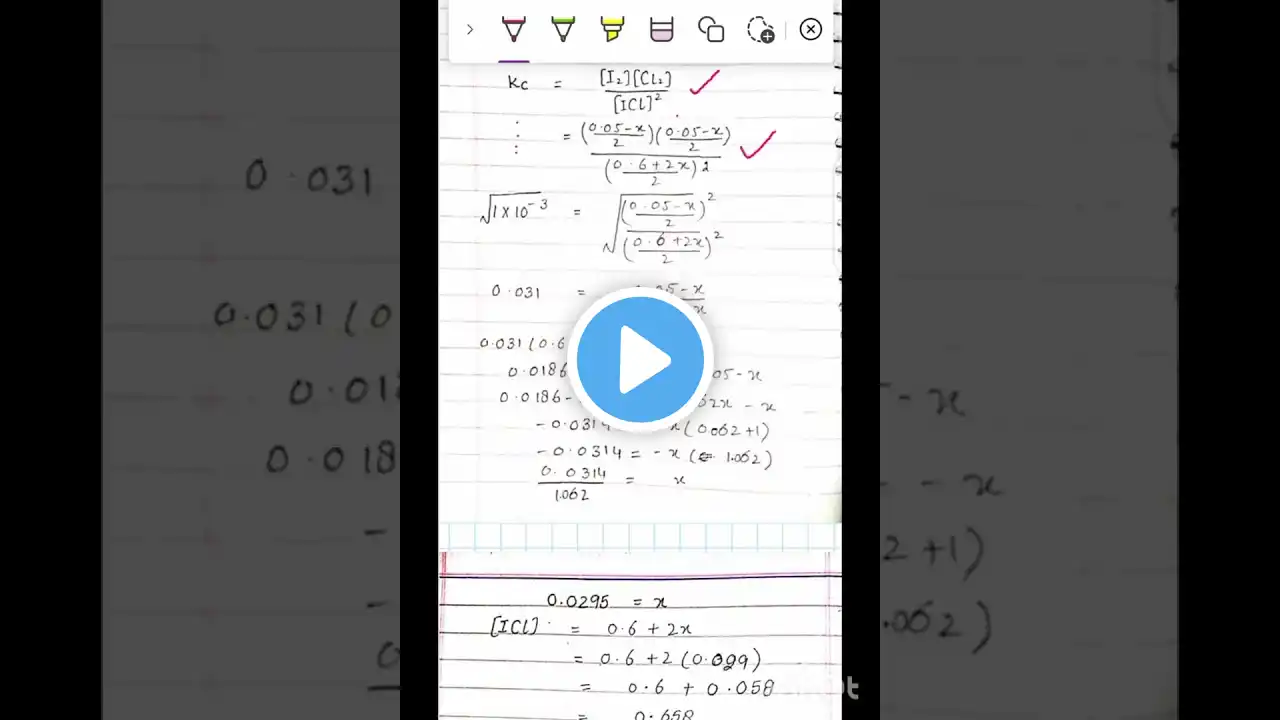 Kc = [I₂][Cl₂] / [ICl]²
: = (0.05-x / 2)(0.05-x / 2) / (0.6+2x / 2)²
√1×10⁻³ = √(0.05-x / 2)² / (0.6+2x / 2)²
0.031 = 05-x / x
0.031(0.6
0.0186 05-x
0.0186- 62x - x
-0.0314 x(0.062+1)
-0.0314 = -x (1.062)
0.0314 / 1.062 = x
0.0295 = x
[ICl] = 0.6+2x
= 0.6+2(0.029)
= 0.6 + 0.058
= 0.658
0.031
0.031(0
0.018
0.018
- x
- x
2+1)
.062)